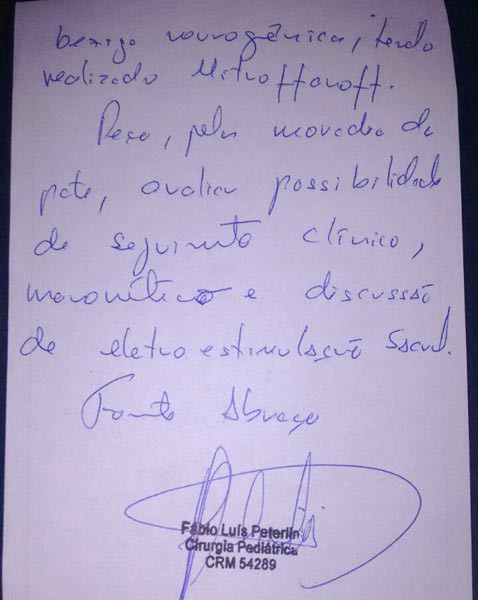 bexiga neurogênica, tendo
realizado Mitroffanoff.
Peço, pela
pcte, avaliar possibilidade
de seguimento clínico,
e discussão
de eletroestimulação Sacral.
Forte Abraço
Fábio Luís Peterlini
Cirurgia Pediátrica
CRM 54289